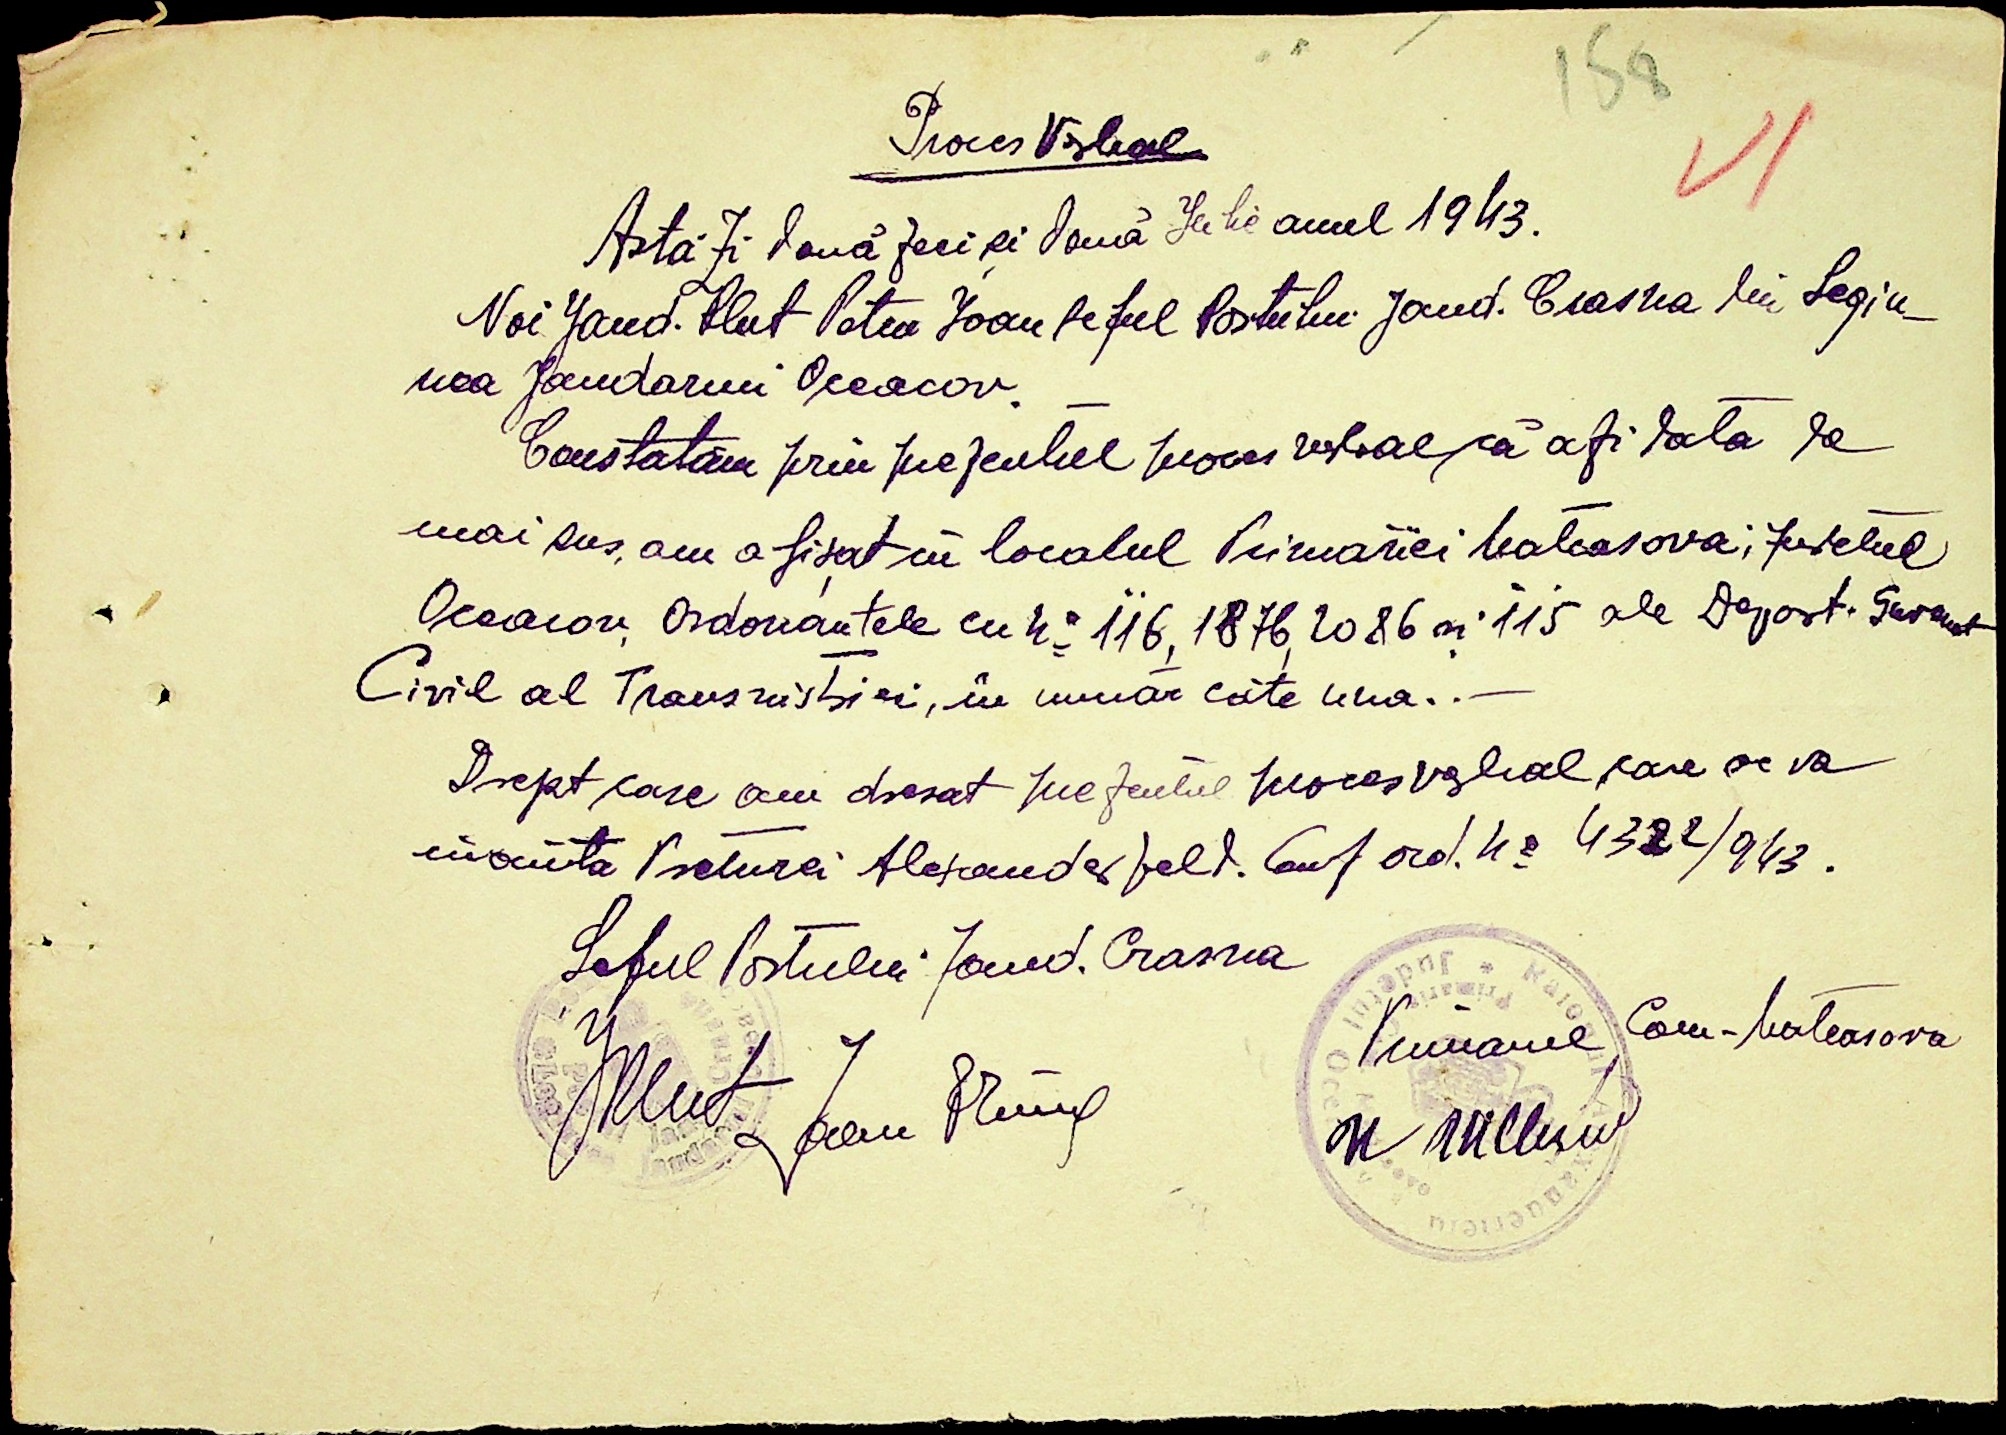 158
VI
Proces Verbal
Astăzi două zeci și două Iulie anul 1943.
Noi Jand. Plut Petru Ioan șeful Postului Jand. Crasna din Legiu-
nea Jandarmi Oceacov.
Constatăm prin prezentul proces verbal, că azi data de
mai sus, am afișat în localul Primăriei Mateasova, județul
Oceacov, Ordonanțele cu No 116, 1876, 2086 și 115 ale Depart. Guvernat
Civil al Transnistriei, în număr câte una. . —
Drept care am dresat prezentul proces verbal, care se va
înainta Preturei Alexanderfeld. Conf ord. No 4322/943.
Șeful Postului Jand. Crasna
Primarul Com-Mateasova
Plut Ioan
Județul
Primaria